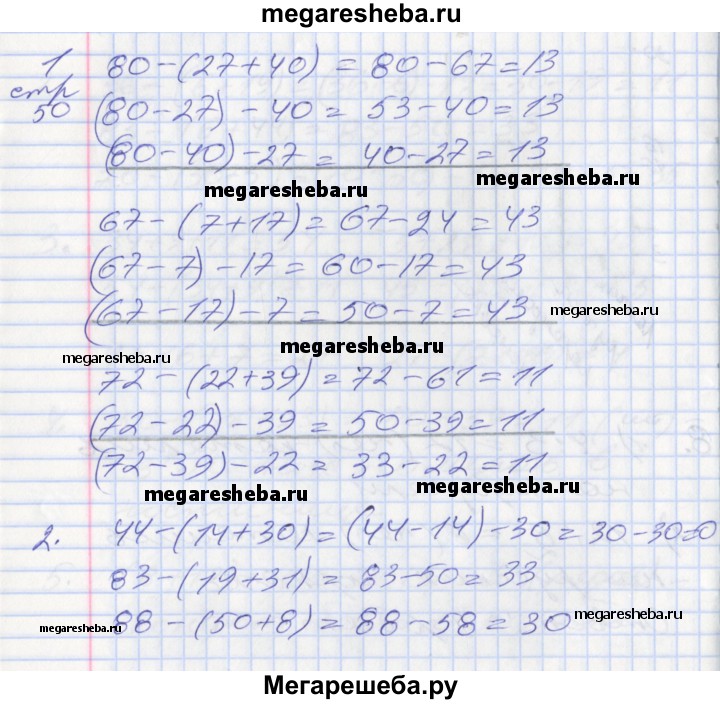 megaresheba.ru
1 80-(27+40) = 80-67=13
стр
50 (80-27) - 40 = 53-40=13
(80-40)-27 = 40-27=13
megaresheba.ru megaresheba.ru
67-(7+17) = 67-24=43
(67-7) -17 = 60-17=43
(67-17)-7 = 50-7=43
megaresheba.ru
megaresheba.ru megaresheba.ru
72-(22+39)=72-61=11
(72-22)-39 = 50-39=11
(72-39)-22 = 33-22=11
megaresheba.ru megaresheba.ru
2. 44-(14+30)=(44-14)-30=30-30=0
83-(19+31) = 83-50=33
megaresheba.ru 88-(50+8) = 88-58=30 megaresheba.ru
Мегарешеба.ру